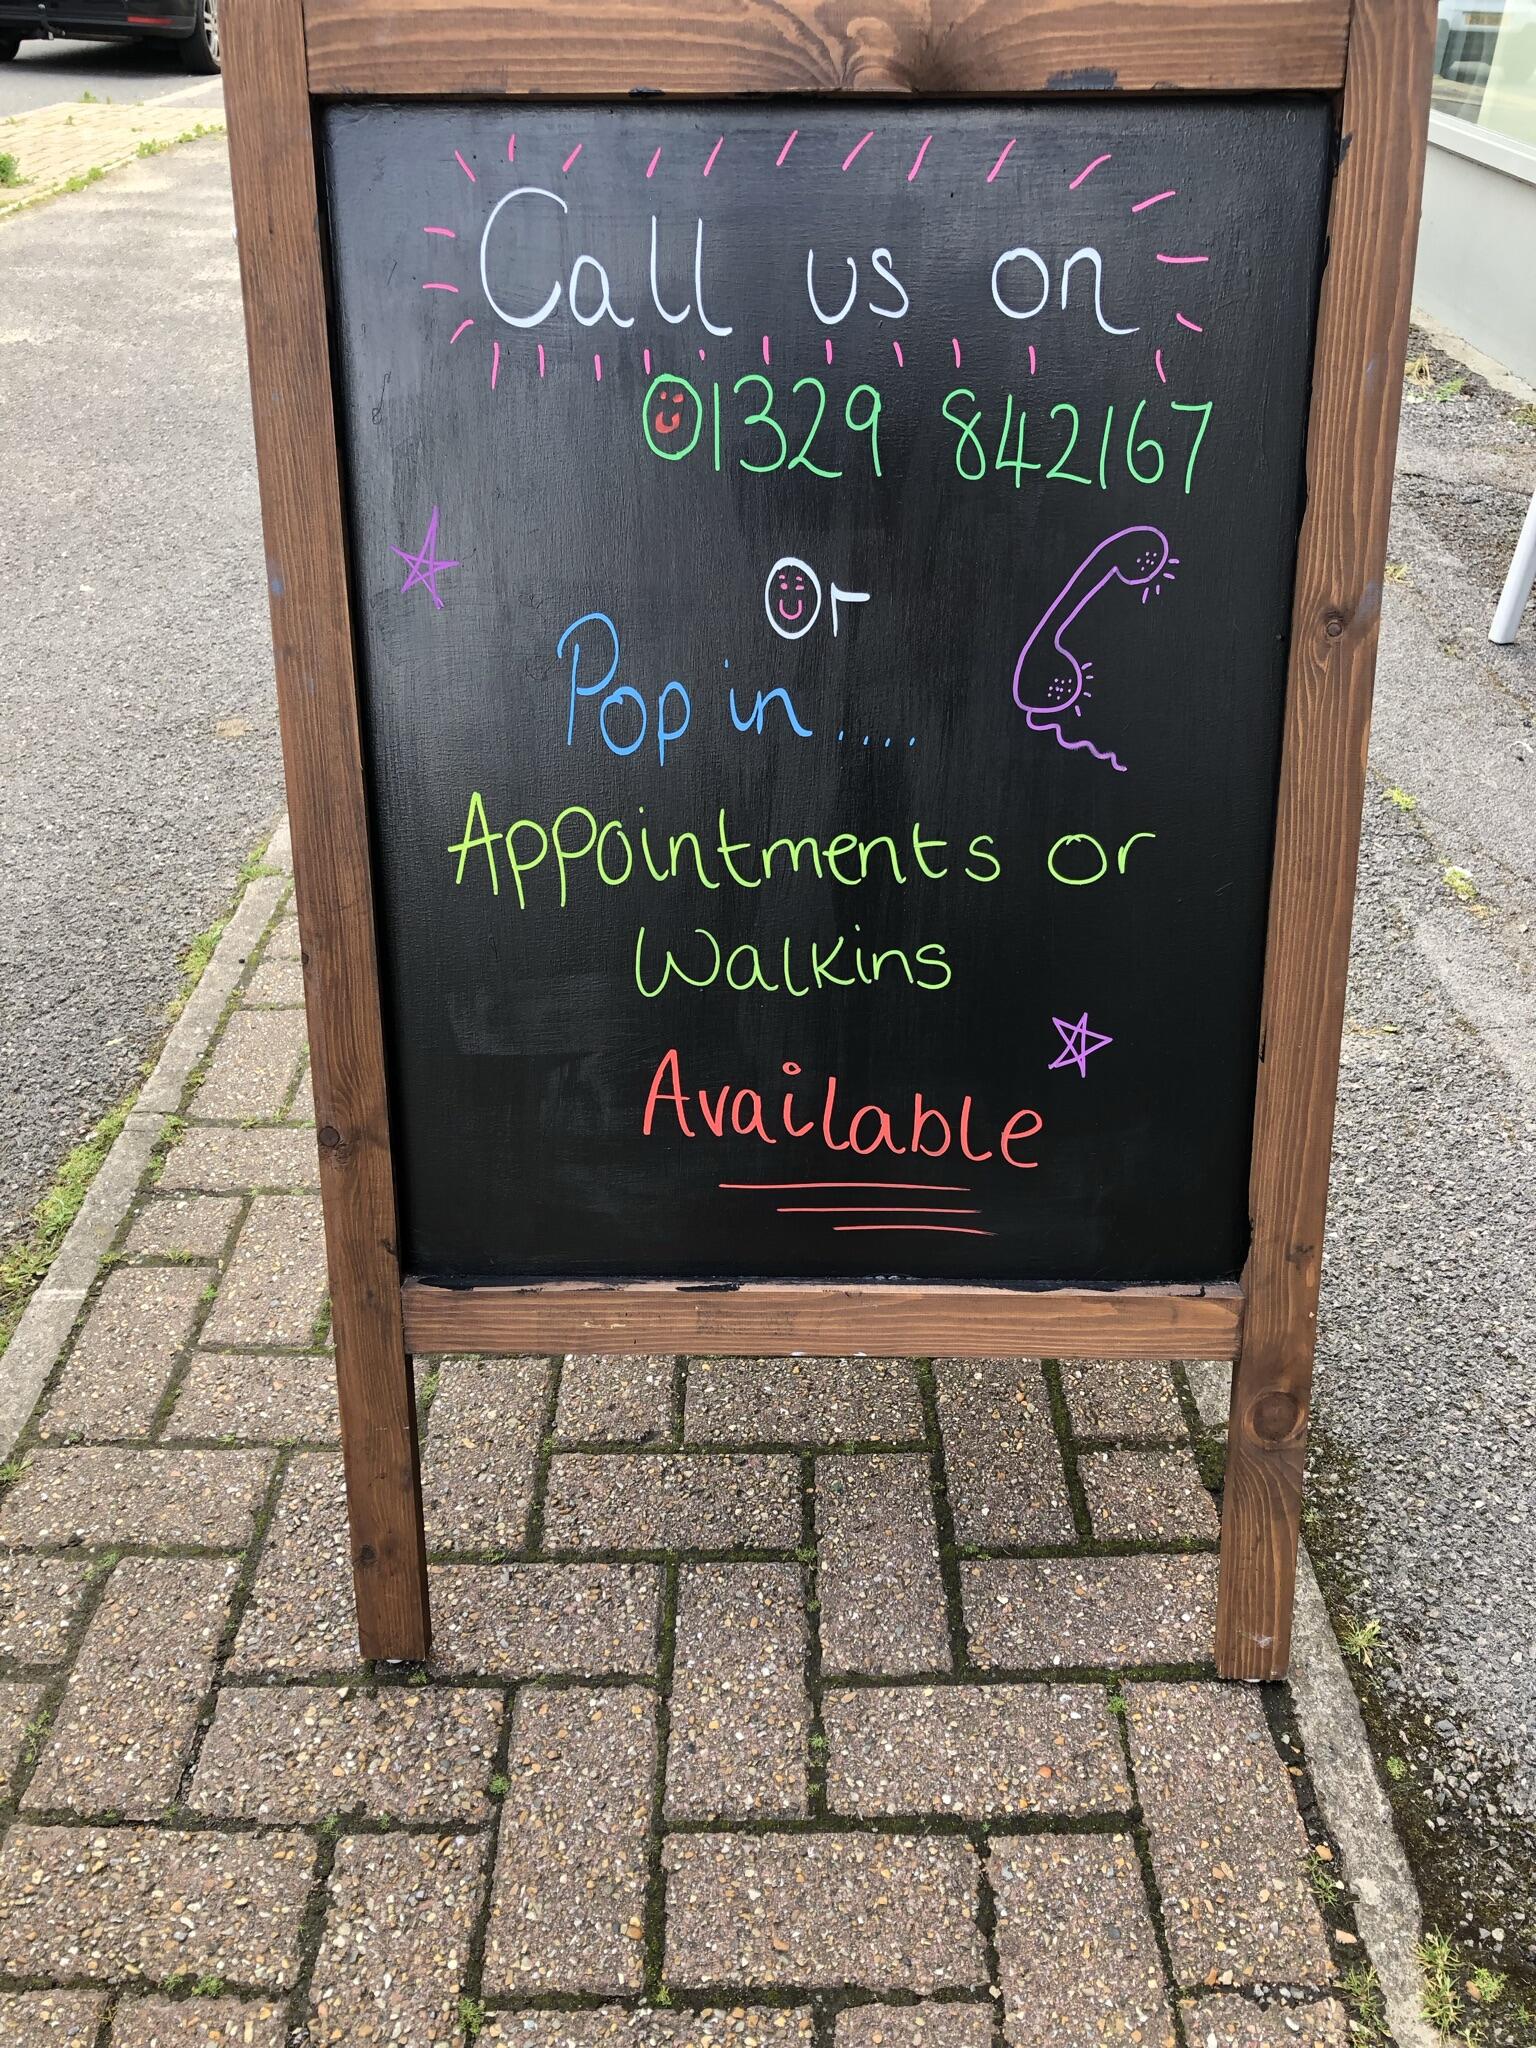 Call us on
01329 842167
Or
Pop in....
Appointments or
Walkins
Available